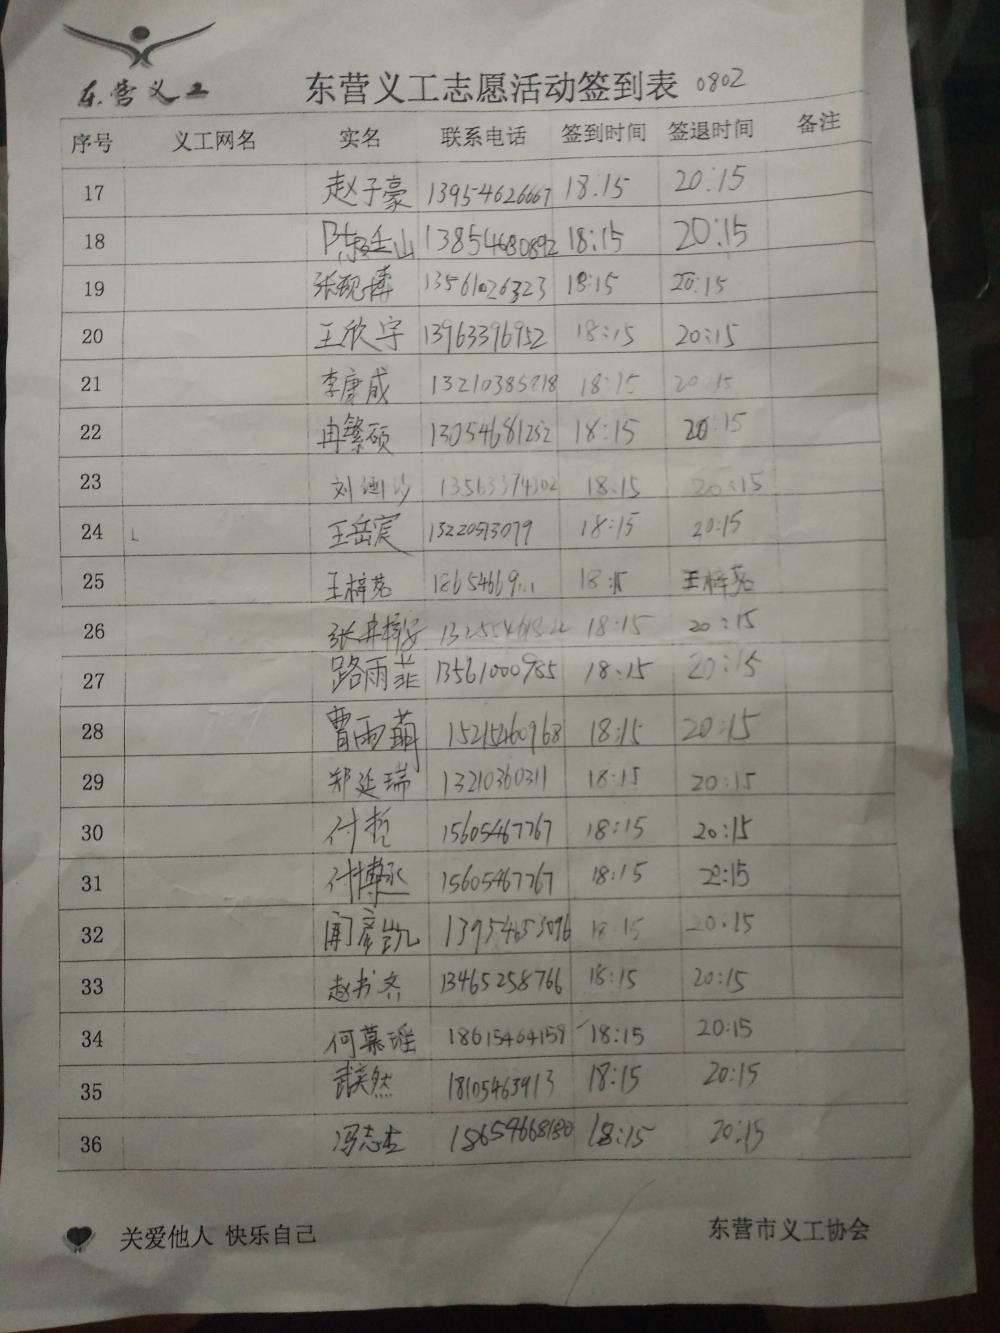 东营义工
东营义工志愿活动签到表 0802
序号 义工网名 实名 联系电话 签到时间 签退时间 备注
17 赵子豪 13954626667 18:15 20:15
18 13854680892 18:15 20:15
19 张砚博 13561026323 18:15 20:15
20 王欣宇 13963396952 18:15 20:15
21 李康成 13210385818 18:15 20:15
22 冉繁硕 13054681252 18:15 20:15
23 13563374302 18:15 20:15
24 王岳宸 13220513079 18:15 20:15
25 王梓茗 18:15 王梓茗
26 18:15 20:15
27 路雨菲 13561000985 18:15 20:15
28 曹雨萌 15215460968 18:15 20:15
29 郑延瑞 13210360311 18:15 20:15
30 付哲 15605467767 18:15 20:15
31 付博丞 15605467767 18:15 20:15
32 闻彦凯 13954653096 18:15 20:15
33 赵书齐 13465258766 18:15 20:15
34 何慕瑶 18615464159 18:15 20:15
35 武奕然 18105463913 18:15 20:15
36 冯志杰 18654668180 18:15 20:15
关爱他人 快乐自己 东营市义工协会